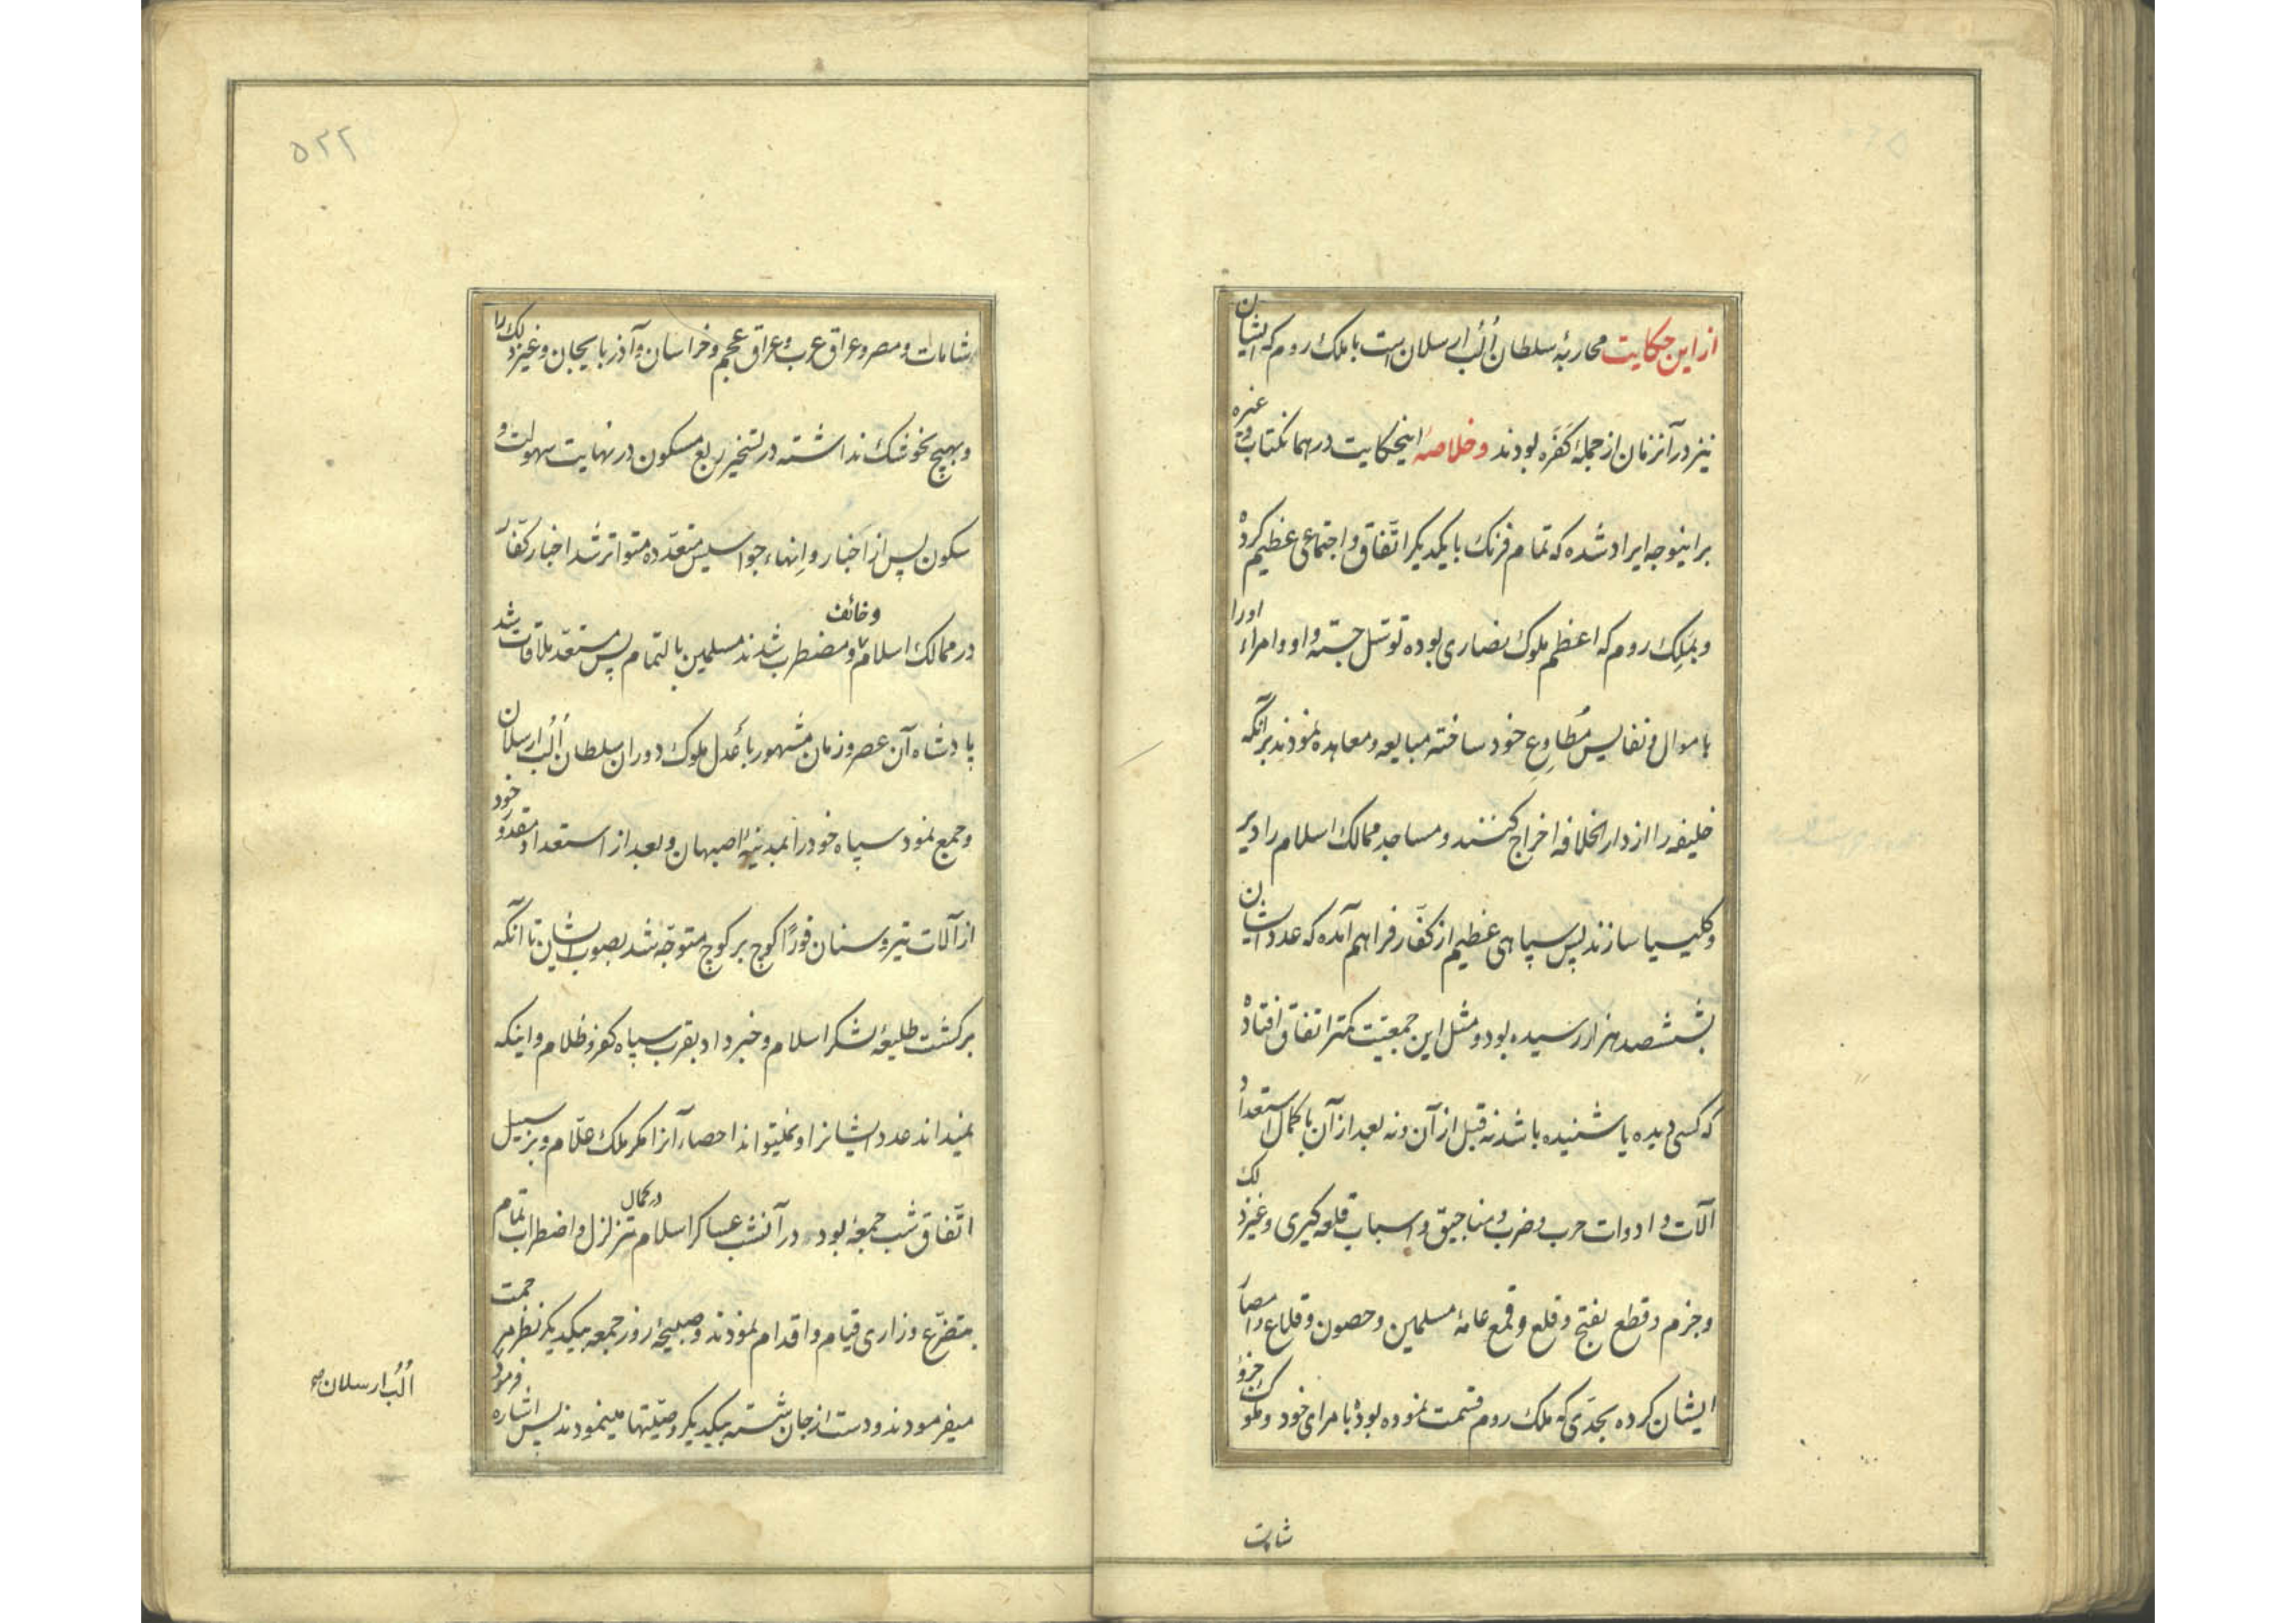 از این حکایت محاربهٔ سلطان اُلُب ارسلان است با ملک روم که ایشان
نیز در آنزمان از جملهٔ کَفَره بودند و خلاصهٔ اینحکایت در همانکتاب و غیره
براینوجه ایراد شده که تمام فرنک با یکدیکر اتّفاق و اجتماعی عظیم کرده
و بمَلِک روم که اعظم ملوک نصاری بوده توسّل جسته و او و امراء او را
باموال و نفایس مُطاوِعِ خود ساخته مبایعه و معاهده نمودند برآنکه
خلیفه را از دار الخلافه اخراج کنند و مساجد ممالک اسلام را دیر
و کلیسیا سازند پس سپاهی عظیم از کفّار فراهم آمده که عدد ایشان
بششصد هزار رسیده بود و مثل این جمعیّت کمتر اتفاق افتاده
که کسی دیده یا شنیده باشد نه قبل از آن و نه بعد از آن با کمال استعداد
آلات و ادوات حرب و ضرب و مناجیق و اسباب قلعه کیری و غیر ذلک
و جزم و قطع بفتح و قلع و قمع عامهٔ مسلمین و حصون و قلاع و امصار
ایشان کرده بحدّی که ملک روم قسمت نموده بود بامرای خود و ملوک جزؤ
شامات
شامات و مصر و عراق عرب و عراق عجم و خراسان و آذربایجان و غیر ذلک را
و بهیچ نحو شک نداشته در تسخیر ربع مسکون در نهایت سهولت و
سکون پس از اخبار و اِنهاء جواسیس متعدّده متواتر شد اخبار کفّار
در ممالک اسلام و مضطرب و خائف شدند مسلمین بالتمام پس مستعدّ ملاقات شد
پادشاه آن عصر و زمان مشهور باَعدل ملوک دوران سلطان اُلُب ارسلان
و جمع نمود سپاه خود را بمدینهٔ اصبهان و بعد از استعداد مقدور خود
از آلات تیر و سنان فورًا کوچ بر کوچ متوجّه شد بصوب ایشان تا آنکه
برکشت طلیعهٔ لشکر اسلام و خبر داد بقرب سپاه کفر و ظلام و اینکه
نمیداند عدد ایشانرا و نمیتواند احصار آنرا مکر ملک علّام و بر سبیل
اتّفاق شب جمعه بود در آنشب عساکر اسلام در کمال تزلزل و اضطراب تمام
بتضرّع و زاری قیام و اقدام نمودند و صبیحهٔ روز جمعه بیکدیکر نظر مرحمت
میفرمودند و دست از جان شسته بیکدیکر وصیّتها مینمودند پس اشاره فرمود
اُلُب ارسلان
۵۲۲